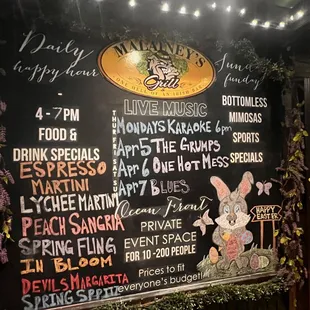 Daily
happy hour
4-7PM
FOOD &
DRINK SPECIALS
ESPRESSO
MARTINI
LYCHEE MARTINI
PEACH SANGRIA
SPRING FLING
IN BLOOM
DEVILS MARGARITA
SPRING SPRITZ
MALAINEY'S
Grill
LIVE MUSIC
THURS FRI SAT SUN
MONDAYS KARAOKE 6pm
Apr 5 THE GRUMPS
Apr 6 ONE HOT MESS
Apr 7 BLUES
Ocean Front
PRIVATE
EVENT SPACE
FOR 10-200 PEOPLE
Prices to fit
everyone's budget!
Sunday
funday
BOTTOMLESS
MIMOSAS
SPORTS
SPECIALS
HAPPY
EASTER